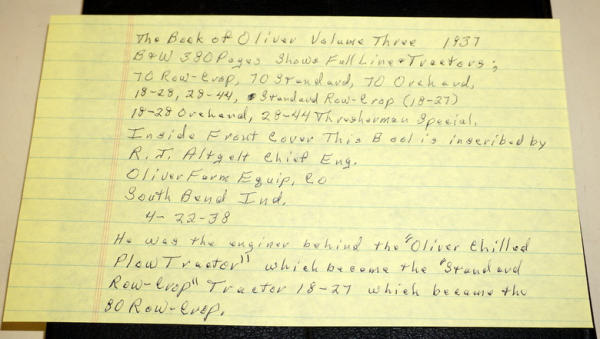 The Book of Oliver Volume Three 1937
B&W 380 Pages Shows Full Line + Tractors;
70 Row-Crop, 70 Standard, 70 Orchard,
18-28, 28-44, Standard Row-Crop (18-27)
18-28 Orchard, 28-44 Thresherman Special.
Inside Front Cover This Book is inscribed by
R. J. Altgelt Chief Eng.
Oliver Farm Equip. Co
South Bend Ind.
4-22-38
He was the enginer behind the "Oliver Chilled
Plow Tractor" which become the "Standard
Row-Crop" Tractor 18-27 which became the
80 Row-Crop.